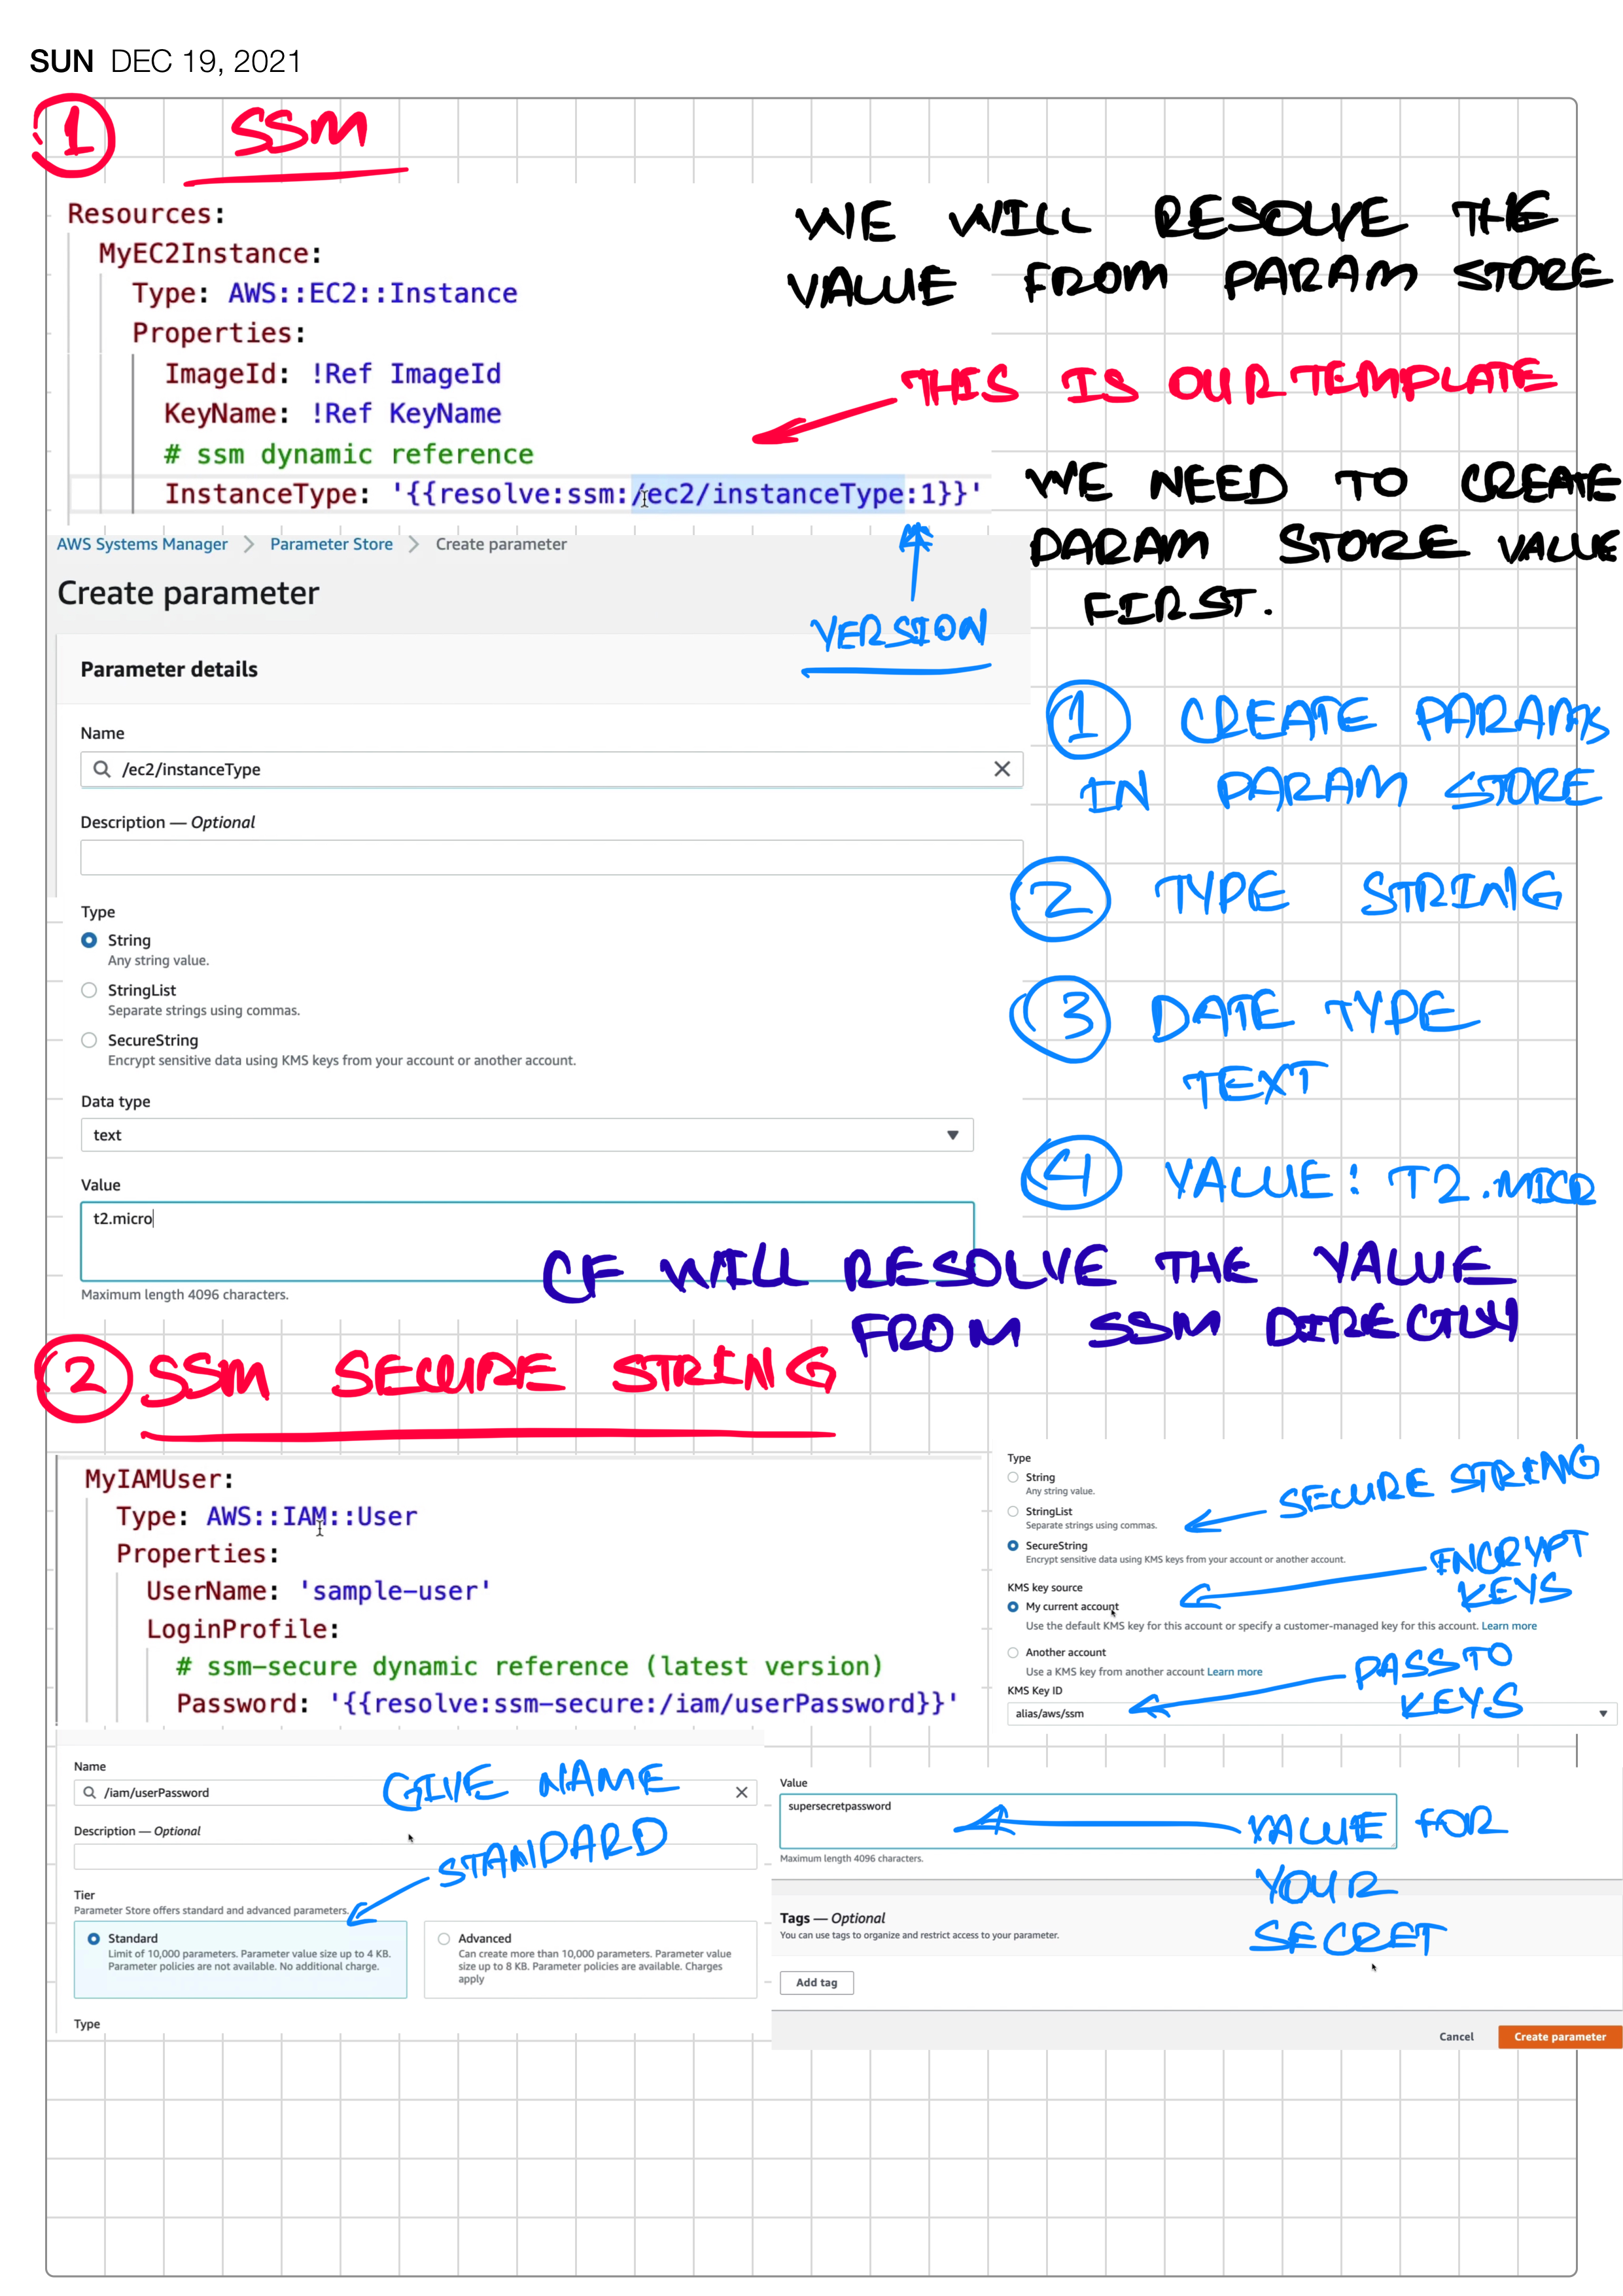 SUN DEC 19, 2021
1 SSM
Resources:
MyEC2Instance:
Type: AWS::EC2::Instance
Properties:
ImageId: !Ref ImageId
KeyName: !Ref KeyName
# ssm dynamic reference
InstanceType: '{{resolve:ssm:/ec2/instanceType:1}}'
WE WILL RESOLVE THE
VALUE FROM PARAM STORE
THIS IS OUR TEMPLATE
WE NEED TO CREATE
PARAM STORE VALUE
FIRST.
AWS Systems Manager > Parameter Store > Create parameter
Create parameter
VERSION
Parameter details
Name
/ec2/instanceType
Description — Optional
Type
String
Any string value.
StringList
Separate strings using commas.
SecureString
Encrypt sensitive data using KMS keys from your account or another account.
Data type
text
Value
t2.micro
Maximum length 4096 characters.
1 CREATE PARAMS
IN PARAM STORE
2 TYPE STRING
3 DATE TYPE
TEXT
4 VALUE: T2.MICR
CF WILL RESOLVE THE VALUE
FROM SSM DIRECTLY
2 SSM SECURE STRING
MyIAMUser:
Type: AWS::IAM::User
Properties:
UserName: 'sample-user'
LoginProfile:
# ssm-secure dynamic reference (latest version)
Password: '{{resolve:ssm-secure:/iam/userPassword}}'
Type
String
Any string value.
StringList
Separate strings using commas.
SecureString
Encrypt sensitive data using KMS keys from your account or another account.
KMS key source
My current account
Use the default KMS key for this account or specify a customer-managed key for this account. Learn more
Another account
Use a KMS key from another account Learn more
KMS Key ID
alias/aws/ssm
SECURE STRING
ENCRYPT
KEYS
PASS TO
KEYS
Name
/iam/userPassword
GIVE NAME
Description — Optional
STANDARD
Tier
Parameter Store offers standard and advanced parameters.
Standard
Limit of 10,000 parameters. Parameter value size up to 4 KB.
Parameter policies are not available. No additional charge.
Advanced
Can create more than 10,000 parameters. Parameter value
size up to 8 KB. Parameter policies are available. Charges
apply
Type
Value
supersecretpassword
Maximum length 4096 characters.
VALUE FOR
YOUR
SECRET
Tags — Optional
You can use tags to organize and restrict access to your parameter.
Add tag
Cancel Create parameter